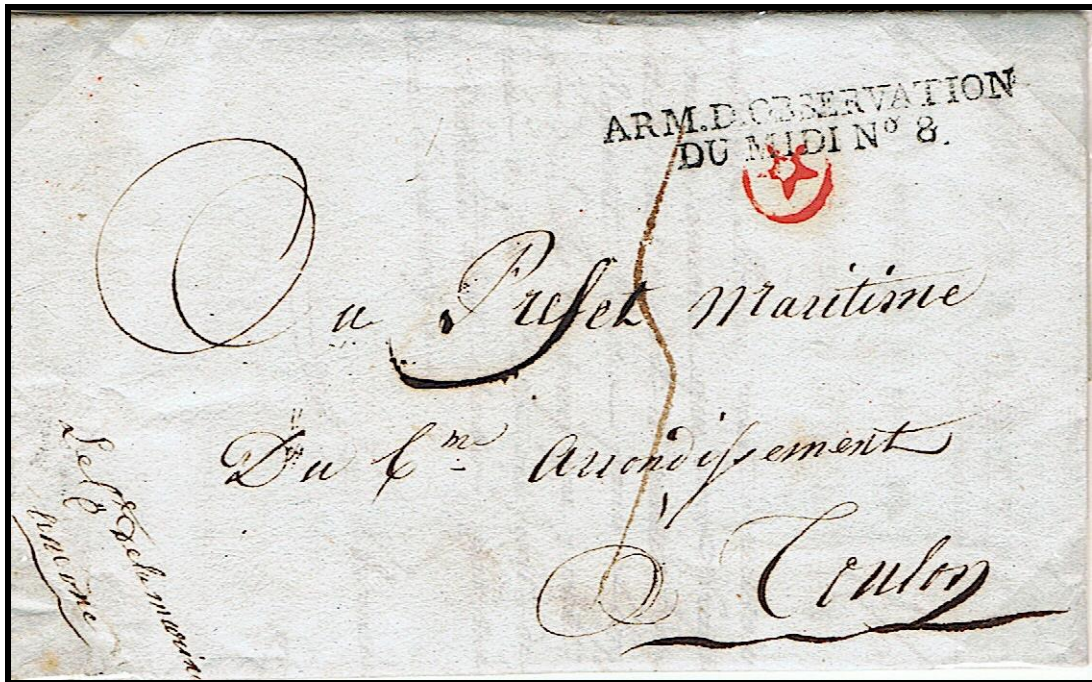 ARM.D.OBSERVATION
DU MIDI Nº 8.
Au Prefet Maritime
Du 6me arrondissement
Toulon
De la marine
ancone